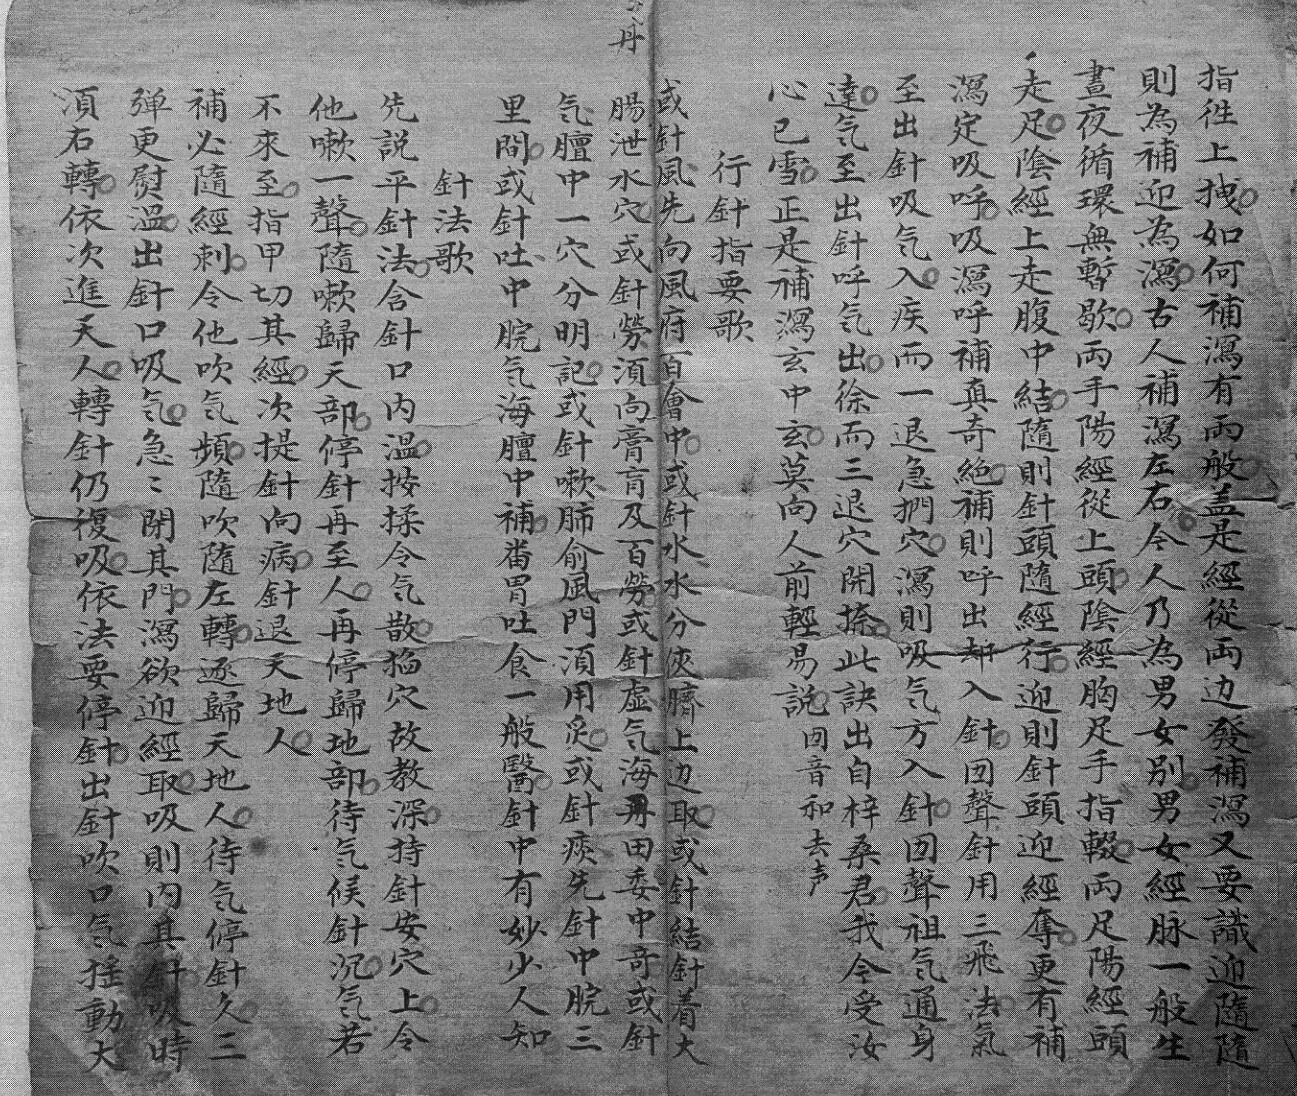 指徃上拽如何補瀉有兩般盖是經從両边發補瀉又要識迎隨隨
則為補迎為瀉古人補瀉左右今人乃為男女别男女經脉一般生
晝夜循環無暫歇両手陽經從上頭隂經胸足手指輟両足陽經頭
走足隂經上走腹中結隨則針頭隨經行迎則針頭迎經奪更有補
瀉定吸呼吸瀉呼補真奇絶補則呼出却入針囬聲針用三飛法氣
至出針吸気入疾而一退急捫穴瀉則吸気方入針囬聲祖気通身
達気至出針呼気出徐而三退穴開捺此訣出自梓桑君我今受汝
心已雪正是補瀉玄中玄莫向人前輕易説囬音和去声
行針指要歌
或針風先向風府百會中或針水水分俠臍上边取或針結針着大
腸泄水穴或針勞湏向膏肓及百勞或針虚気海丹田委中奇或針
気膻中一穴分明記或針嗽肺俞風門湏用灸或針痰先針中脘三
里問或針吐中脘気海膻中補畨胃吐食一般醫針中有妙少人知
針法歌
先説平針法含針口内温按揉令気散掐穴故教深持針安穴上令
他嗽一聲隨嗽歸天部停針再至人再停歸地部待気候針沉気若
不來至指甲切其經次提針向病針退天地人
補必隨經刺令他吹気頻隨吹隨左轉逐歸天地人待气停針久三
弾更熨温出針口吸気急〻閉其門瀉欲迎經取吸則内其針吸時
湏右轉依次進天人轉針仍復吸依法要停針出針吹口気揺動大
丹